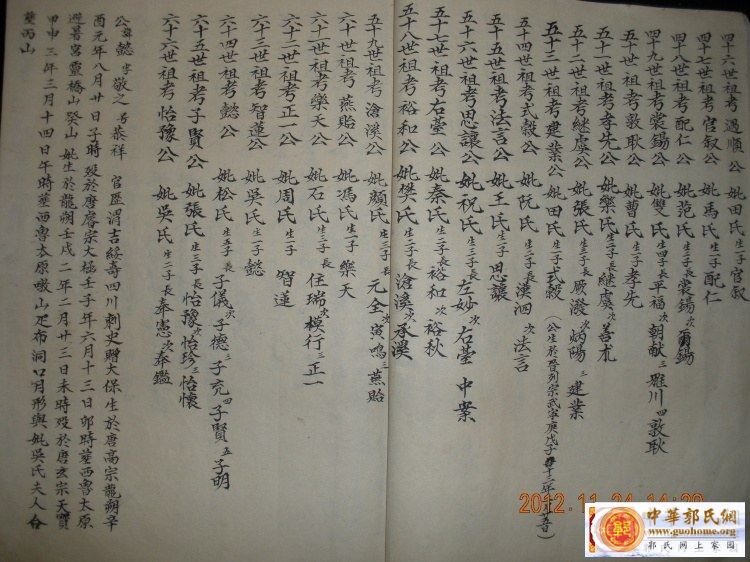 四十六世祖考遇順公 妣田氏生一子官叙
四十七世祖考官叙公 妣馬氏生一子配仁
四十八世祖考配仁公 妣范氏生二子長裳錫次爾錫
四十九世祖考裳錫公 妣雙氏生四子長平福次朝献三
五十世祖考敦耿公 妣曹氏生一子孝先
五十一世祖考孝先公 妣樂氏生二子長継虞次善朮
五十二世祖考継虞公 妣張氏生三子長 次炳陽三建業
五十三世祖考建業公 妣田氏生一子式穀
五十四世祖考式穀公 妣阮氏生二子長漢泗次法言
五十五世祖考法言公 妣王氏生一子思讓
五十六世祖考思讓公 妣祝氏生三子長左妙次右䑓 中案
五十七世祖考右䑓公 妣秦氏生二子長裕和次裕秋
五十八世祖考裕和公 妣樊氏生二子長滄溪次承溪
五十九世祖考滄溪公 妣顔氏生三子長元全次寅鳴三燕貽
六十世祖考燕貽公 妣馮氏生一子樂天
六十一世祖考樂天公 妣石氏生三子長住瑞次模行三正一
六十二世祖考正一公 妣周氏生一子智蓮
六十三世祖考智蓮公 妣吳氏生一子懿
六十四世祖考懿公 妣松氏生五子長子儀次子德三子充四子賢五子明
六十五世祖考子賢公 妣張氏生三子長怡豫次怡珍三怡懷
六十六世祖考怡豫公 妣吳氏生二子長奉憲次奉鑑
公諱懿字敬之号恭祥 官歷渭吉綏奇四川剌史贈大保生於唐高宗龍朔辛
酉元年八月廿日子時殁於唐睿宗太極壬子年六月十三日卯時塟西魯太原
避暑宮靈橋山癸山 妣生於龍朔壬戌二年二月廿三日未時殁於唐玄宗天寳
甲申三年三月十四日午時塟西魯太原墩山疋布洞口月形與妣吳氏夫人合
塟丙山
2012.11.24 14:29
中華郭氏網
www.guohome.org
郭氏网上家园